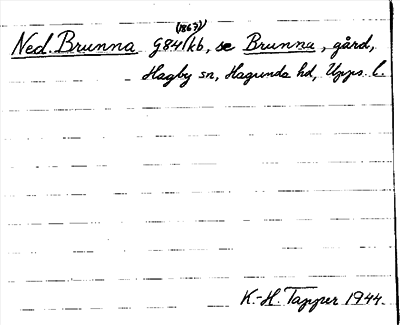 (1863)
Ned. Brunna G84 kb, se Brunna, gård,
Hagby sn, Hagunda hd, Upps. l.
K.-H. Tapper 1944.